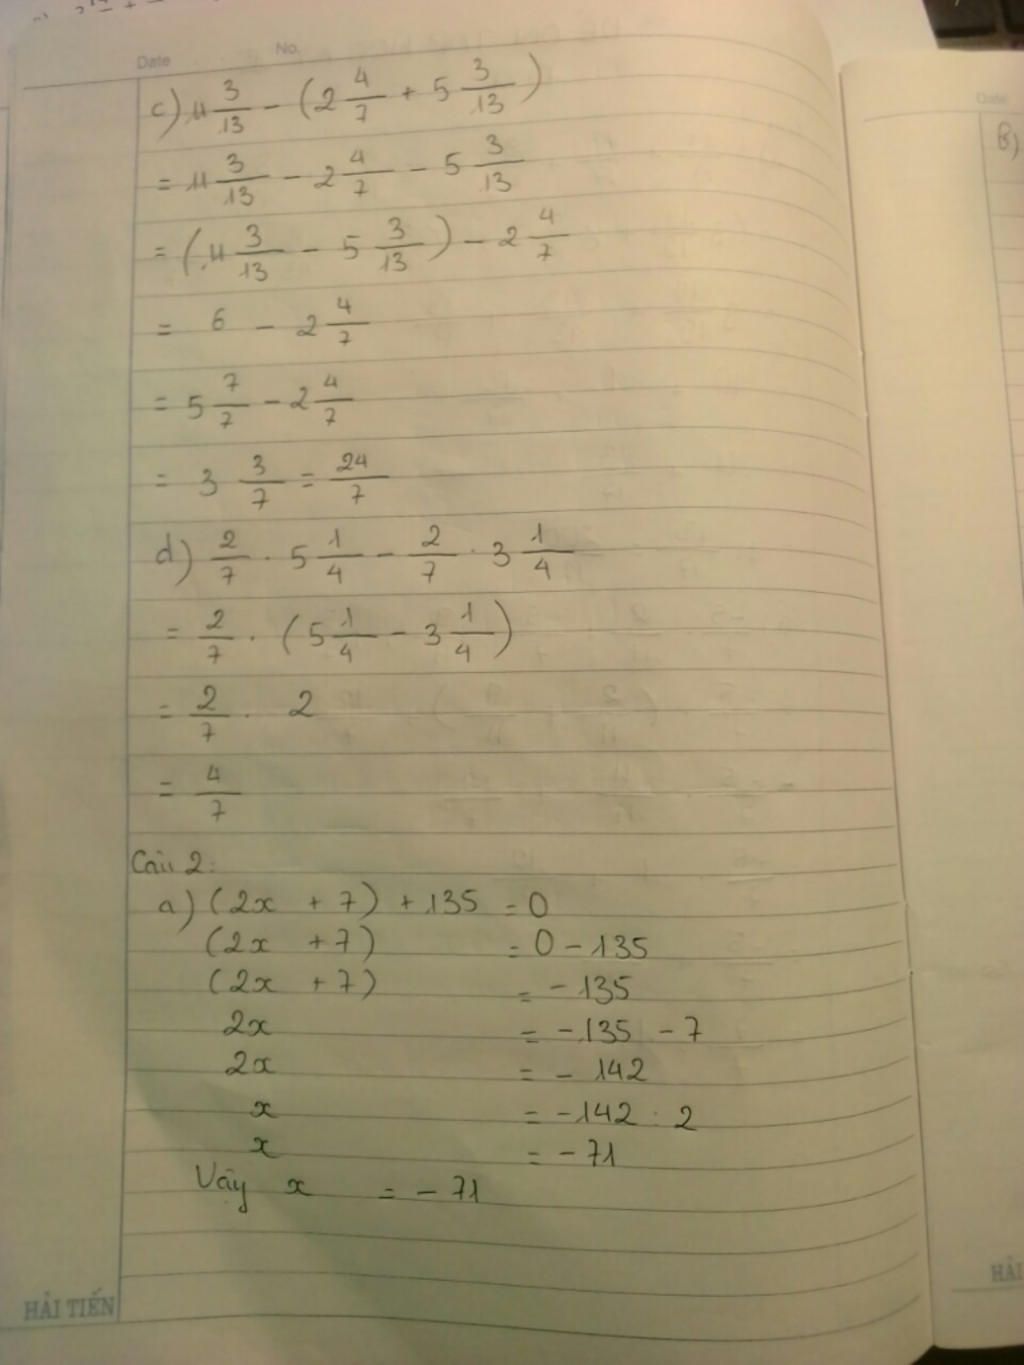 Date No.
c) 11 3/13 - (2 4/7 + 5 3/13)
= 11 3/13 - 2 4/7 - 5 3/13
= (11 3/13 - 5 3/13) - 2 4/7
= 6 - 2 4/7
= 5 7/7 - 2 4/7
= 3 3/7 = 24/7
d) 2/7 . 5 1/4 - 2/7 . 3 1/4
= 2/7 . (5 1/4 - 3 1/4)
= 2/7 . 2
= 4/7
Câu 2:
a) (2x + 7) + 135 = 0
(2x + 7) = 0 - 135
(2x + 7) = - 135
2x = - 135 - 7
2x = - 142
x = - 142 : 2
x = - 71
Vậy x = - 71
HẢI TIẾN
Date
B)
HẢI